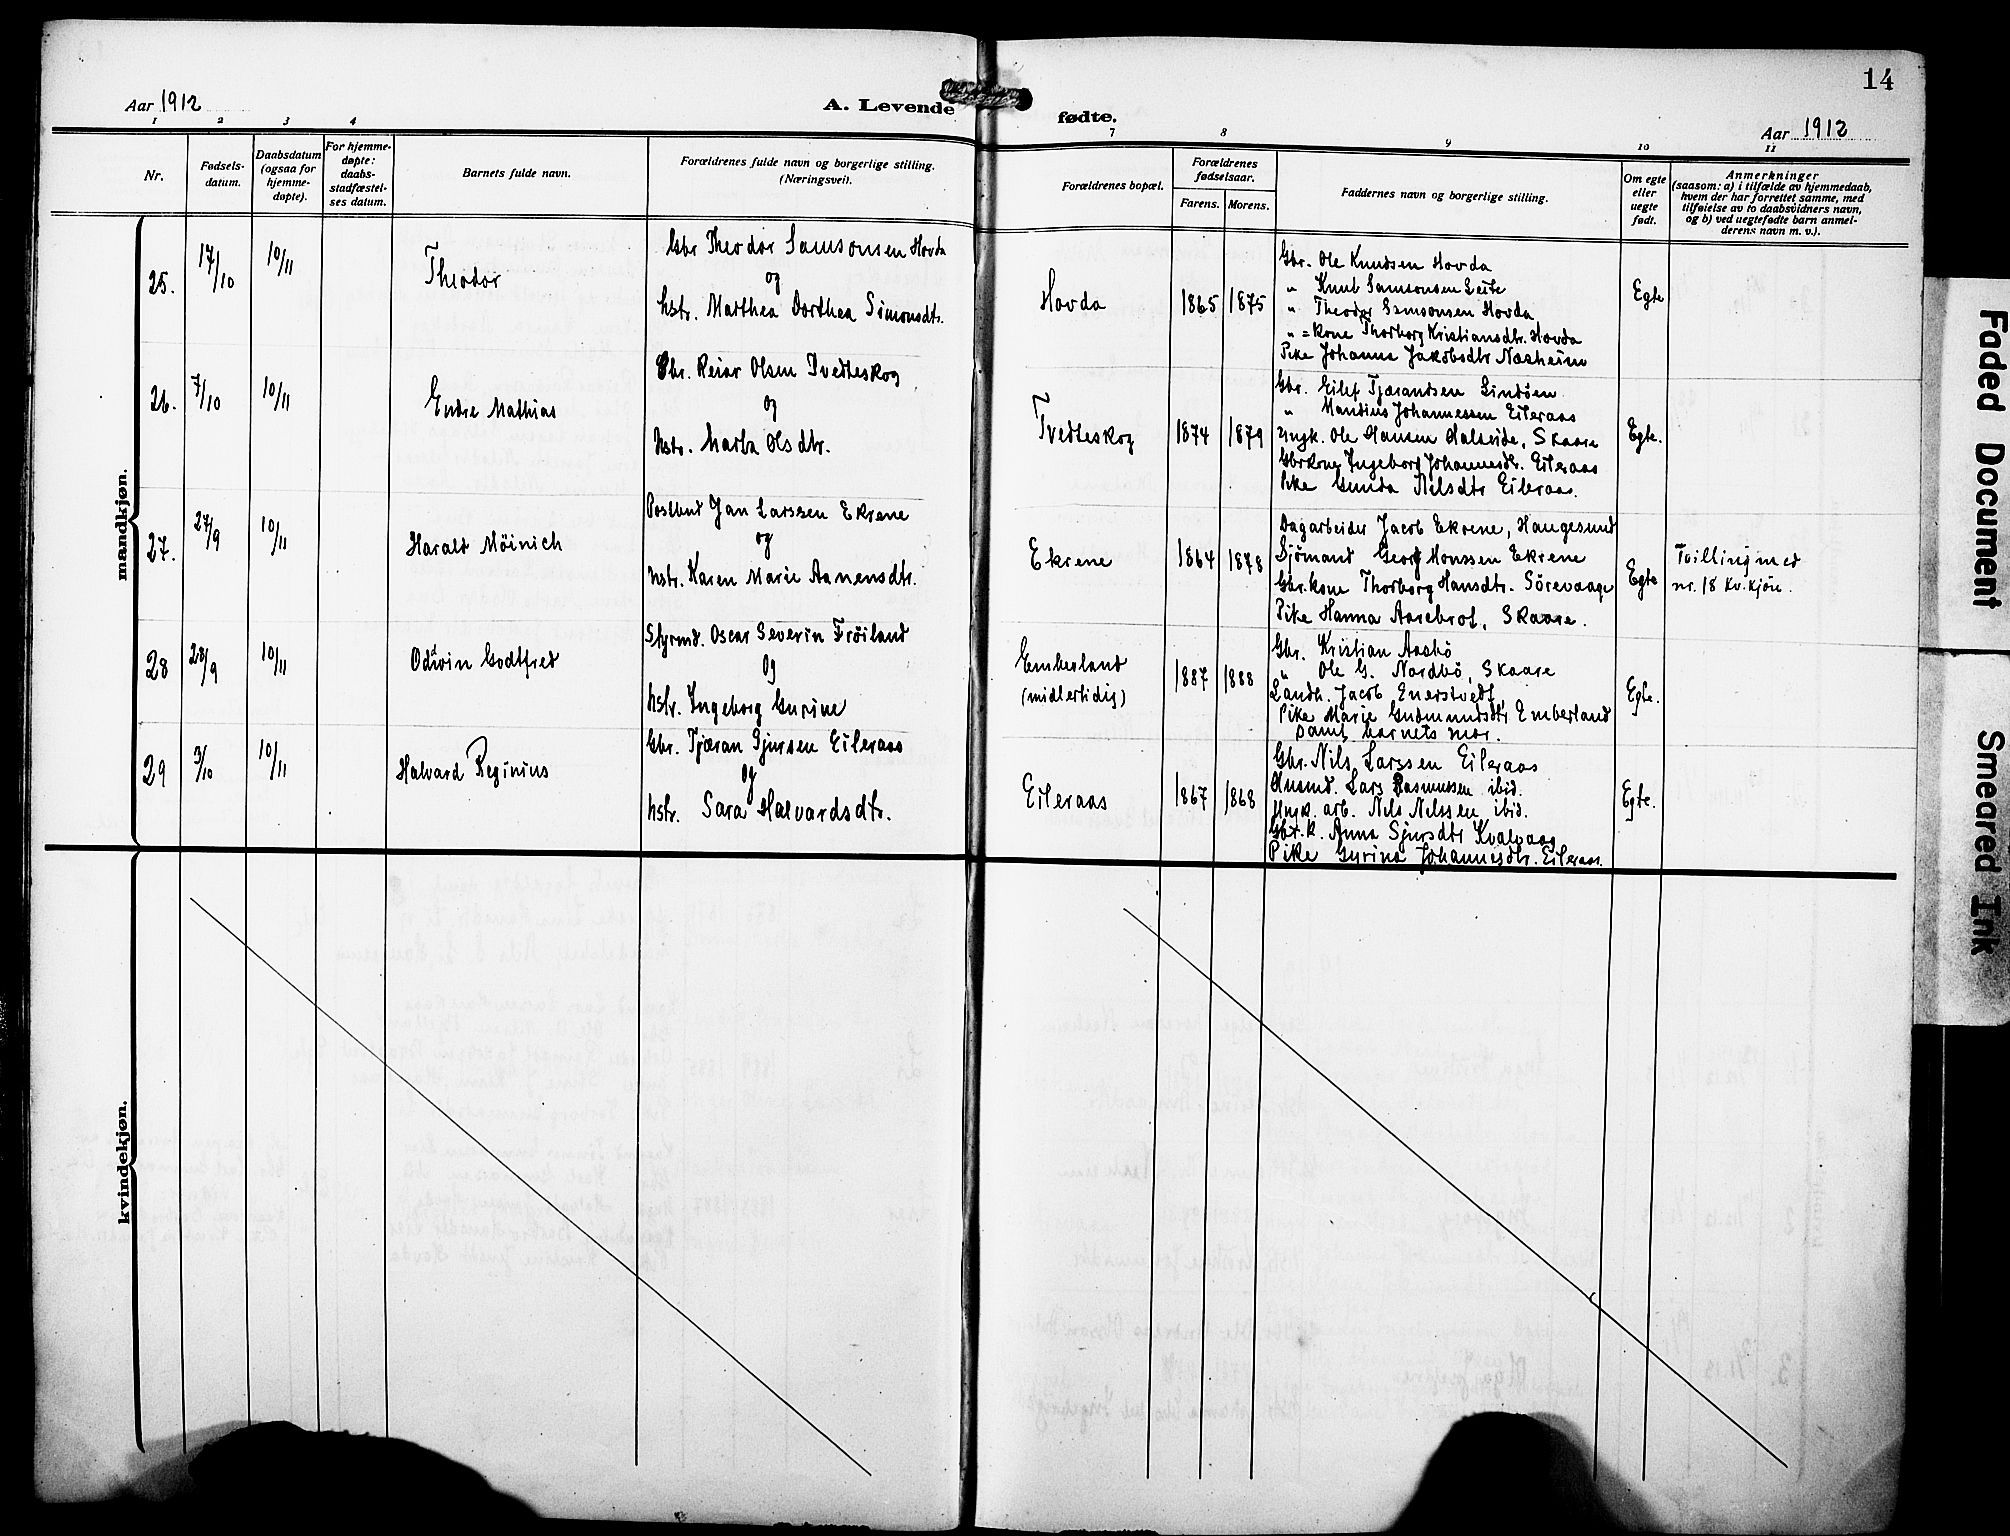 14
Aar 1912
A. Levende fødte.
Aar 1912
1 2 3 4 7 8 9 10 11
Nr.
Fødsels-
datum.
Daabsdatum
(ogsaa for
hjemme-
døpte).
For hjemme-
døpte:
daabs-
stadfæstel-
ses datum.
Barnets fulde navn.
Forældrenes fulde navn og borgerlige stilling.
(Næringsvei).
Forældrenes bopæl.
Forældrenes
fødselsaar.
Farens. Morens.
Faddernes navn og borgerlige stilling.
Om egte
eller
uegte
født.
Anmerkninger
(saasom: a) i tilfælde av hjemmedaab,
hvem der har forrettet samme, med
tilføielse av to daabsvidners navn,
og b) ved uegtefødte barn anmel-
derens navn m. v.).
mandkjøn.
25.
17/10
10/11
Theodor
Gbr Theodor Samsonsen Hovda
og
hstr. Marthea Dorthea Simonsdtr.
Hovda
1865
1875
Gbr. Ole Knudsen Hovda
" Knut Samsonsen Leite
" Theodor Samsonsen Hovda
" =kone Thorborg Kristiansdtr. Hovda
Pike Johanna Jakobsdtr Næsheim
Egte
26.
7/10
10/11
Endre Mathias
Gbr. Reiar Olsen Tvedteskog
og
hstr. Marta Olsdtr.
Tvedteskog
1874
1879
Gbr. Eilef Tjærandsen Lindøen
" Mandius Johannessen Eileraas
Ungk. Ole Hansen Halseide, Skaare
Gbrkone Ingeborg Johannesdtr. Eileraas
Pike Gunda Nilsdtr Eileraas.
Egte.
27.
27/9
10/11
Harald Möinich
Postbud Jan Larssen Ekrene
og
hstr. Karen Marie Aanensdtr.
Ekrene
1864
1878
Dagarbeider Jacob Ekrene, Haugesund
Sjömand Georg Monssen Ekrene
Gbr.kone Thorborg Hansdtr. Sörevaage
Pike Hanna Aarebrot, Skaare.
Egte
Tvilling med
nr. 18 kv.kjön.
28
28/9
10/11
Odwin Godtfred
Styrmd. Oscar Severin Fröiland
og
hstr. Ingeborg Gurine
Emberland
(midlertidig)
1887
1888
Gbr. Kristian Aasbö
" Ole G. Nordbö, Skaare
Landh. Jacob Enerstvedt,
Pike Marie Gudmundsdtr Emberland
samt barnets mor.
Egte.
29
3/10
10/11
Halvard Reginius
Gbr. Tjæran Sjursen Eileraas
og
hstr. Sara Halvardsdtr.
Eileraas
1867
1868
Gbr. Nils Larssen Eileraas
Husmd. Lars Rasmussen ibid.
Ungk. arb. Nels Nelssen ibid.
Gbr.k. Anna Sjursdtr Kvalvaag
Pike Gurina Johannesdtr. Eileraas.
Egte.
kvindekjøn.
Faded Document
Smeared Ink